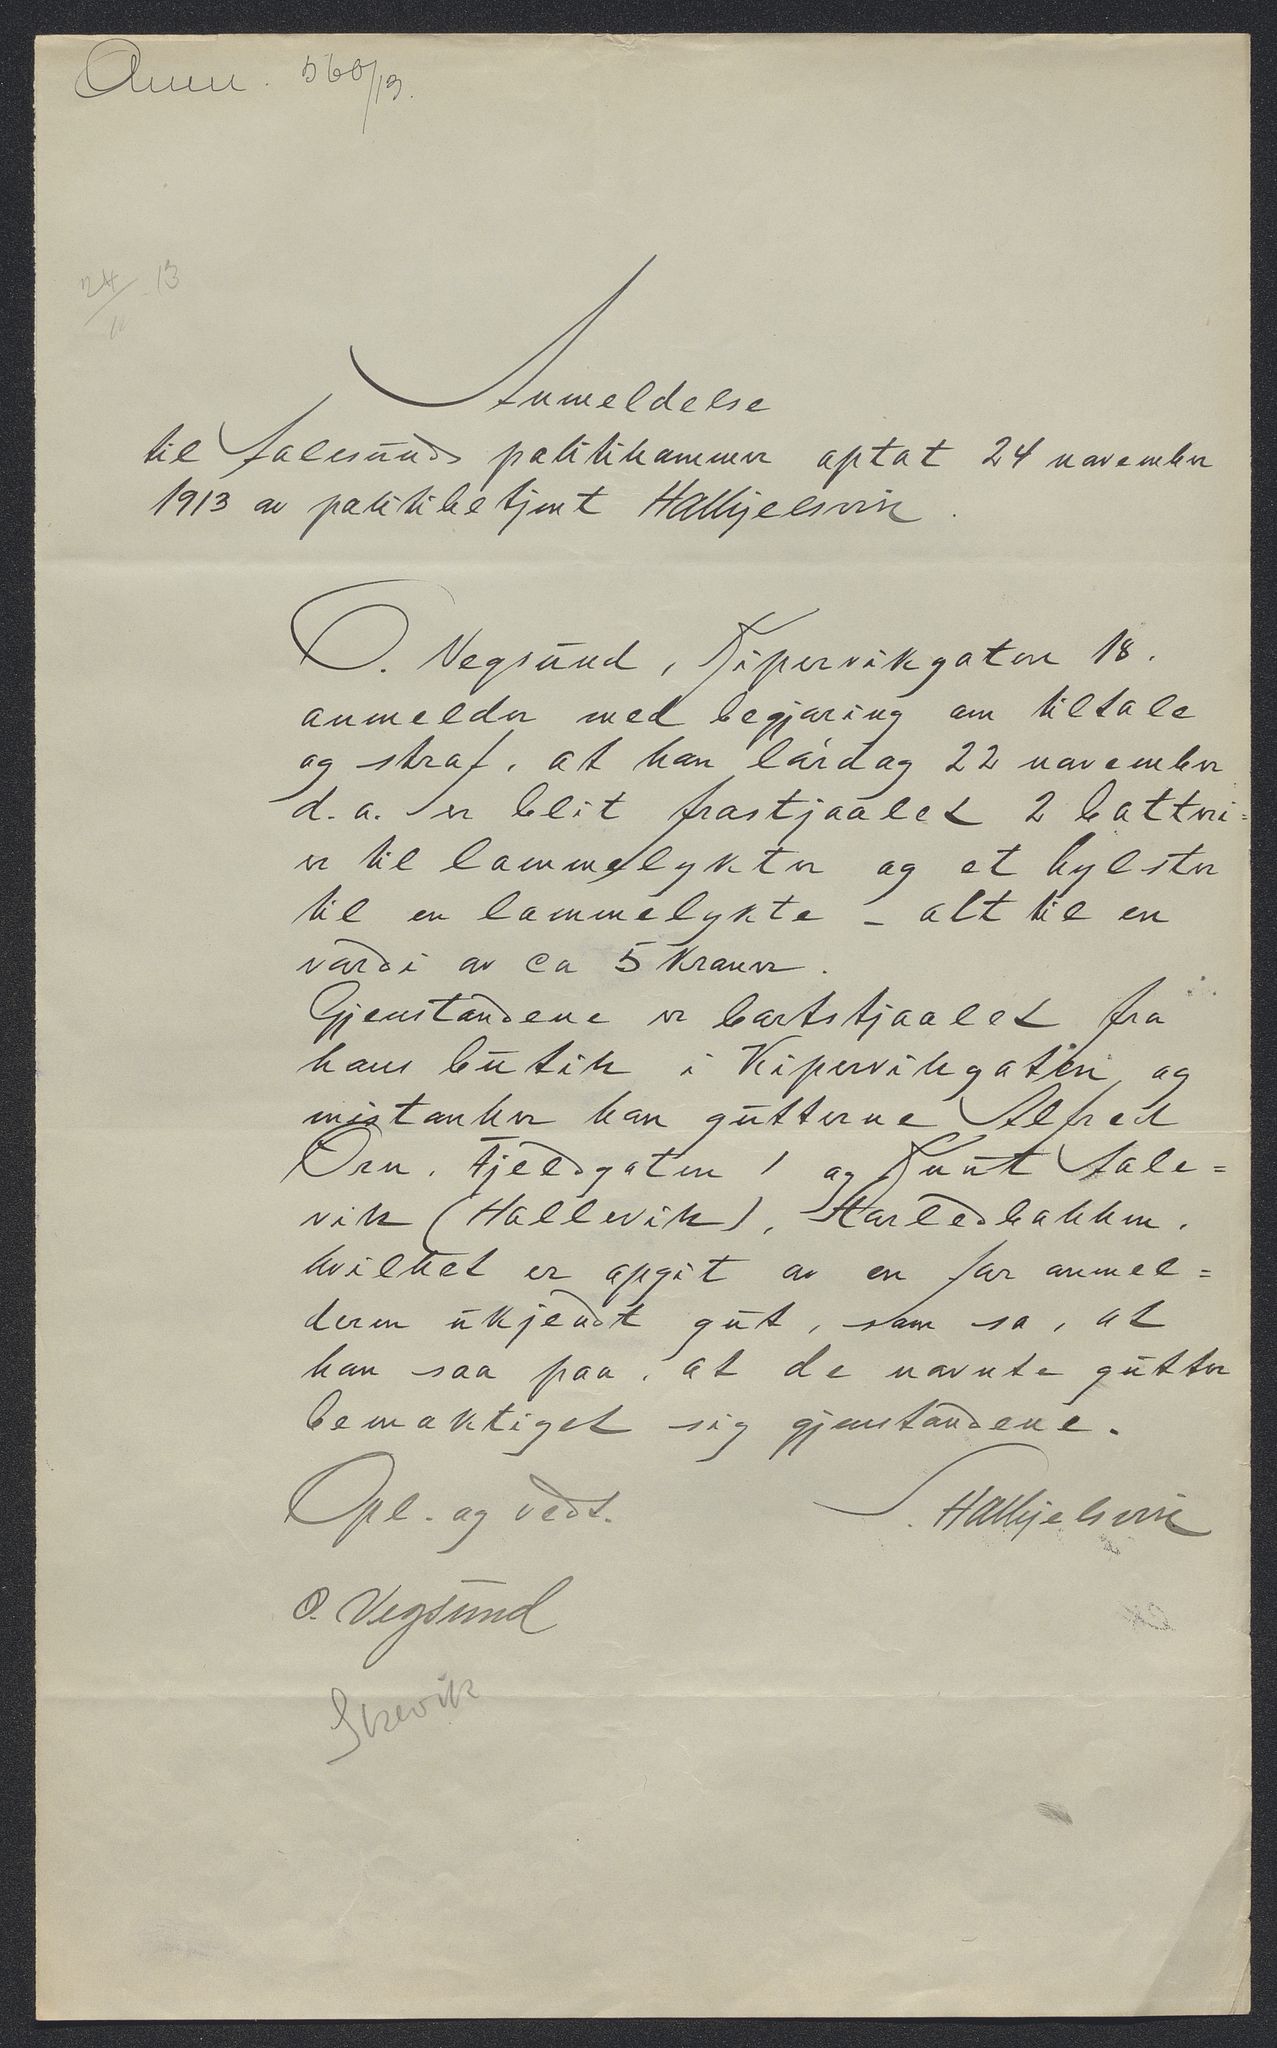 Anm. 560/13.
24/11 13
Anmeldelse
til Aalesunds politikammer optat 24 november
1913 av politibetjent Hallkjelsvik.
O. Vegsund, Kipervikgaten 18.
anmelder med begjæring om tiltale
og straf, at han lørdag 22 november
d.a. er blit frastjaalet 2 batteri=
er til lommelykter og et hylster
til en lommelykte – alt til en
værdi av ca 5 kroner.
Gjenstandene er bortstjaalet fra
hans butik i Kipervikgaten, og
mistænker han gutterne Alfred
Orn, Fjeldgaten 1 og Knut Aale=
vik (Hallevik),
hvilket er opgit av en for anmel=
deren ukjendt gut, som sa, at
han saa paa, at de nævnte gutter
bemægtiget sig gjenstandene.
Opl. og vedt.
Hallkjelsvik
O. Vegsund
Skrevik